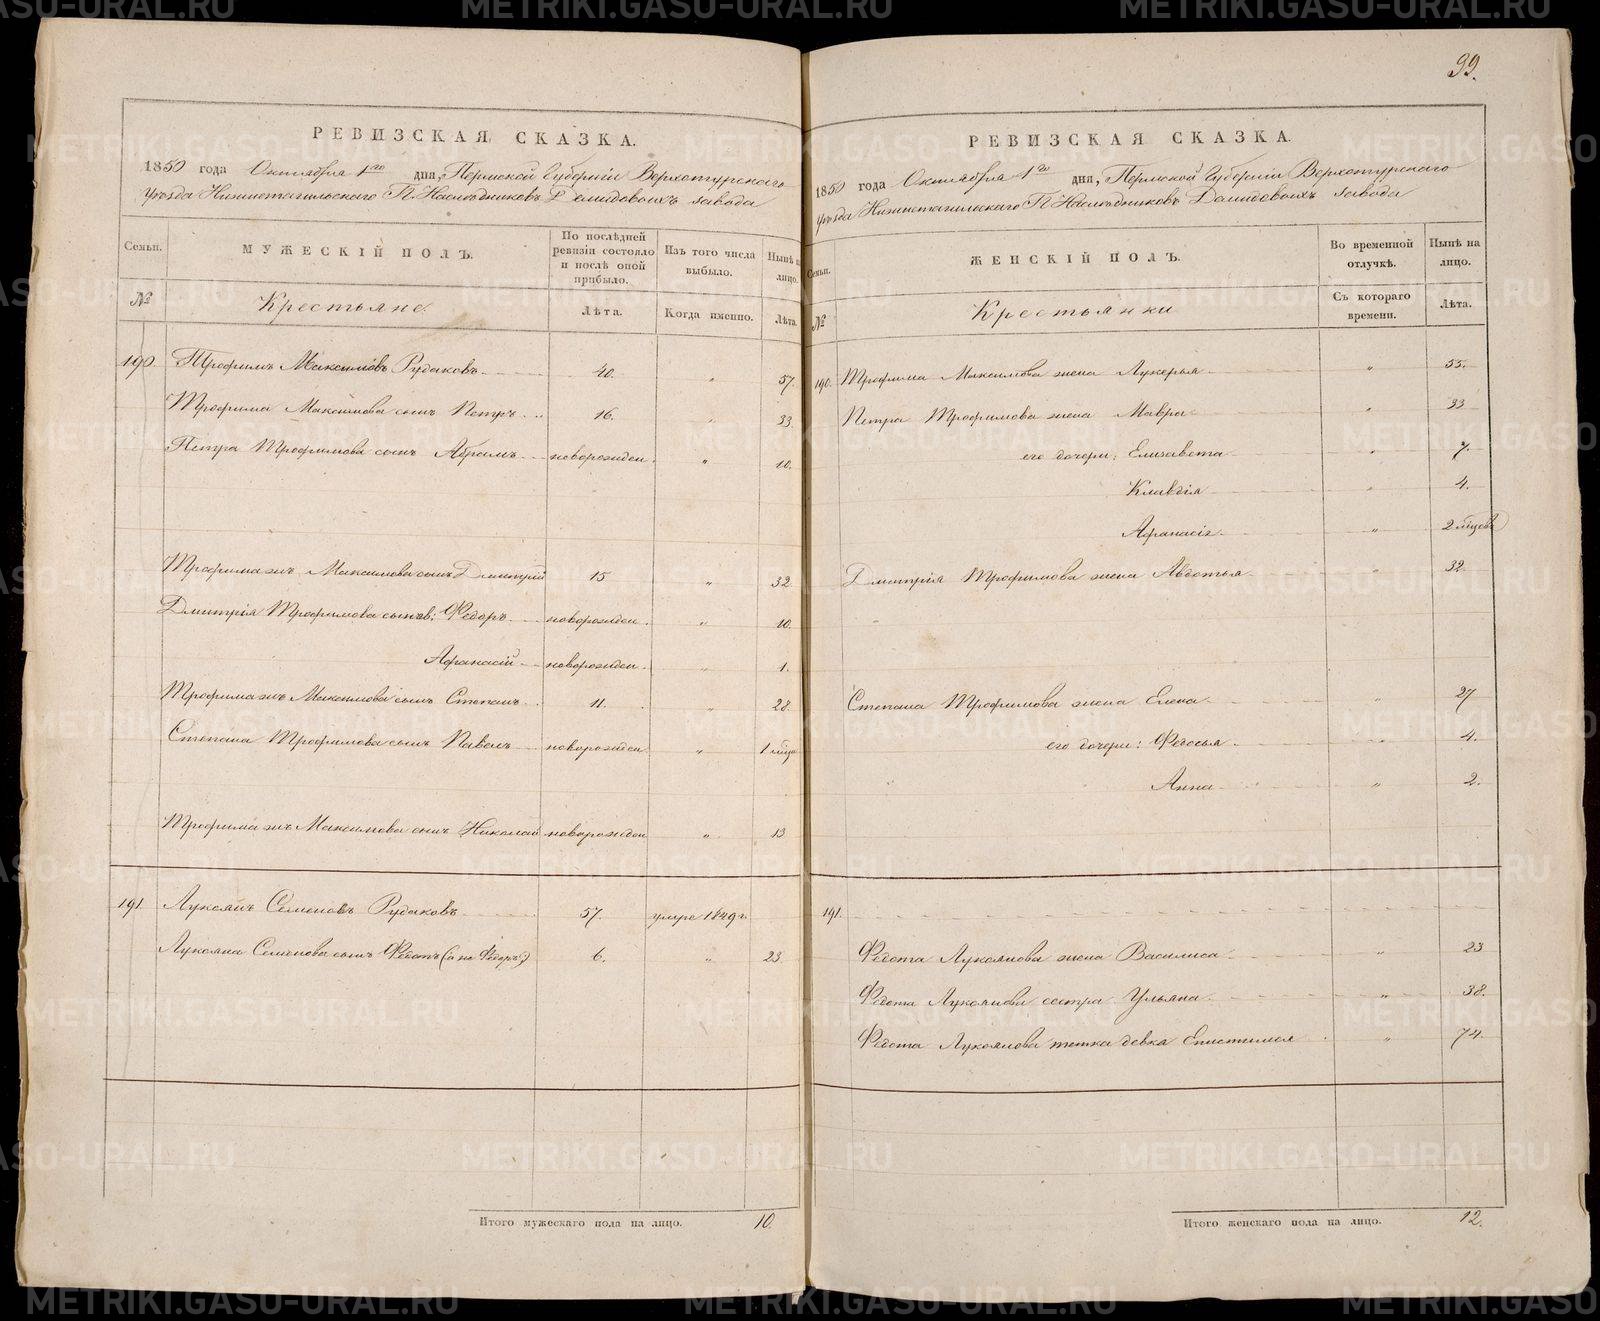 99.
РЕВИЗСКАЯ СКАЗКА.
1850 года Октября 1го дня, Пермской Губерніи Верхотурскаго
уѣзда Нижнетагильскаго Гг. Наслѣдниковъ Демидовыхъ завода
Семьи.
МУЖЕСКІЙ ПОЛЪ.
По послѣдней ревизіи состояло и послѣ оной прибыло.
Изъ того числа выбыло.
Нынѣ на лицо.
№
Крестьяне.
Лѣта.
Когда именно.
Лѣта.
190. Трофимъ Максимовъ Рудаковъ 40. " 57.
Трофима Максимова сынъ Петръ 16. " 33.
Петра Трофимова сынъ Абрамъ новорожден. " 10.
Трофима жъ Максимова сынъ Дмитрій 15 " 32
Дмитрія Трофимова сынов: Ѳедоръ новорожден. " 10.
Афанасій новорожден. " 1.
Трофима жъ Максимова сынъ Степанъ 11. " 28.
Степана Трофимова сынъ Павелъ новорожден " 1 мца
Трофима жъ Максимова сынъ Николай новорожден " 13
191. Лукоянъ Семеновъ Рудаковъ 57. умре 1849 г.
Лукояна Семенова сынъ Ѳедотъ (а не Ѳедоръ) 6. " 23
Итого мужескаго пола на лицо. 10.
РЕВИЗСКАЯ СКАЗКА.
1850 года Октября 1го дня, Пермской Губерніи Верхотурскаго
уѣзда Нижнетагильскаго Гг. Наслѣдниковъ Демидовыхъ завода
Семьи.
ЖЕНСКІЙ ПОЛЪ.
Во временной отлучкѣ.
Нынѣ на лицо.
№
Крестьянки
Съ котораго времени.
Лѣта.
190. Трофима Максимова жена Лукерья " 55.
Петра Трофимова жена Мавра " 33
его дочери: Елизавета " 7.
Клавдія " 4.
Афанасія " 2 мцовъ
Дмитрія Трофимова жена Авдотья " 32
Степана Трофимова жена Елена " 27
его дочери: Ѳедосья " 4.
Анна " 2.
191.
Ѳедота Лукоянова жена Василиса " 23
Ѳедота Лукоянова сестра Ульяна " 38.
Ѳедота Лукоянова тетка девка Епистимья " 74.
Итого женскаго пола на лицо. 12.
METRIKI.GASO-URAL.RU